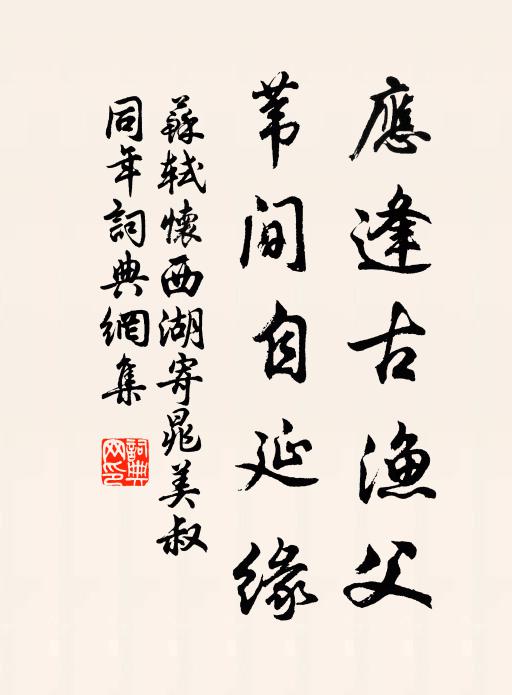 應逢古漁父
苇间自延缘
蘇軾懷西湖寄晁美叔
同年詞典網集
詞典
网印